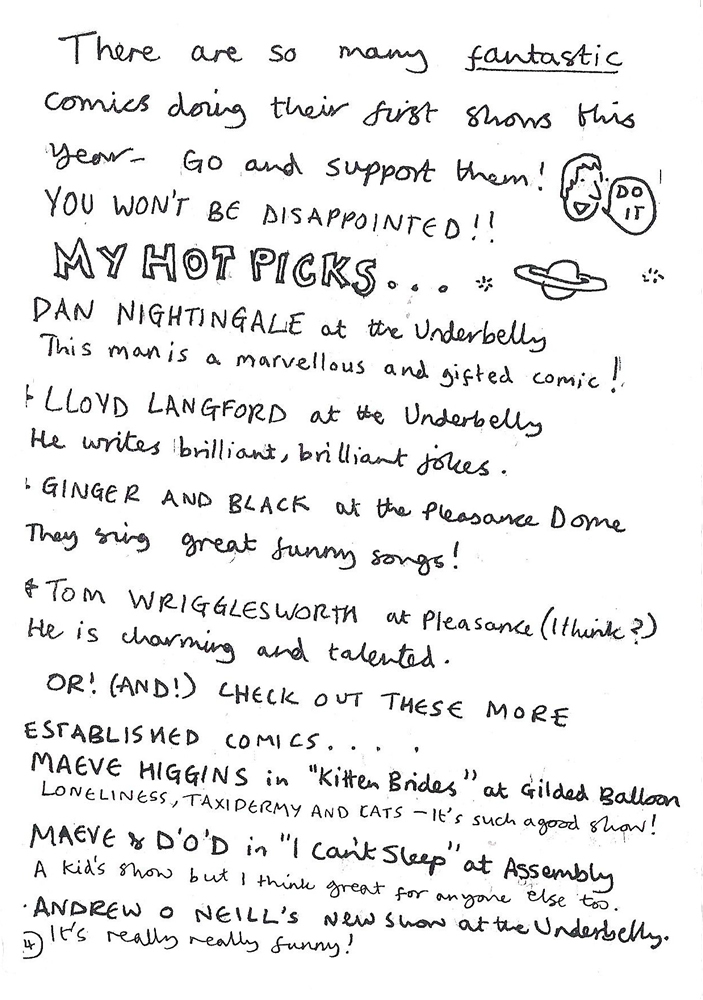 There are so many fantastic
comics doing their first shows this
year - Go and support them!
DO
IT
YOU WON'T BE DISAPPOINTED!!
MY HOT PICKS...
DAN NIGHTINGALE at the Underbelly
This man is a marvellous and gifted comic!
LLOYD LANGFORD at the Underbelly
He writes brilliant, brilliant jokes.
GINGER AND BLACK at the Pleasance Dome
They sing great funny songs!
TOM WRIGGLESWORTH at Pleasance (I think?)
He is charming and talented.
OR! (AND!) CHECK OUT THESE MORE
ESTABLISHED COMICS....
MAEVE HIGGINS in "Kitten Brides" at Gilded Balloon
LONELINESS, TAXIDERMY AND CATS - It's such a good show!
MAEVE & D'O'D in "I Can't Sleep" at Assembly
A kid's show but I think great for anyone else too.
ANDREW O NEILL's New show at the Underbelly.
4 It's really really funny!